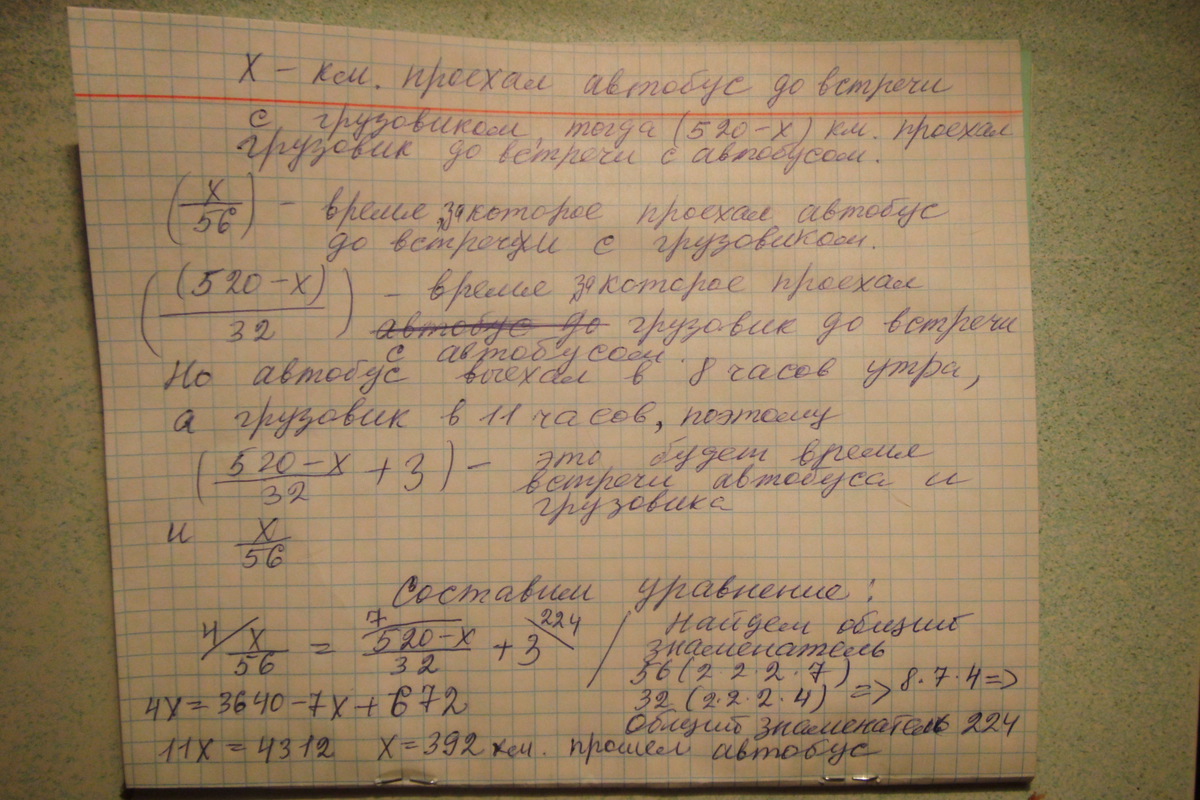 X – км. проехал автобус до встречи
с грузовиком, тогда (520-х) км. проехал
грузовик до встречи с автобусом.
(x/56) – время, за которое проехал автобус
до встречи с грузовиком.
((520-x)/32) – время за которое проехал
автобус до грузовик до встречи
с автобусом.
Но автобус выехал в 8 часов утра,
а грузовик в 11 часов, поэтому
(520-x/32 + 3) – это будет время
встречи автобуса и
грузовика
и x/56
Составим уравнение:
4/ x/56 = 7/ 520-x/32 + 3 \224 / Найдем общий
знаменатель
56 (2·2·2·7)
32 (2·2·2·4) => 8·7·4 =>
Общий знаменатель 224
4x = 3640-7x+672
11x = 4312 x = 392 км. прошел автобус